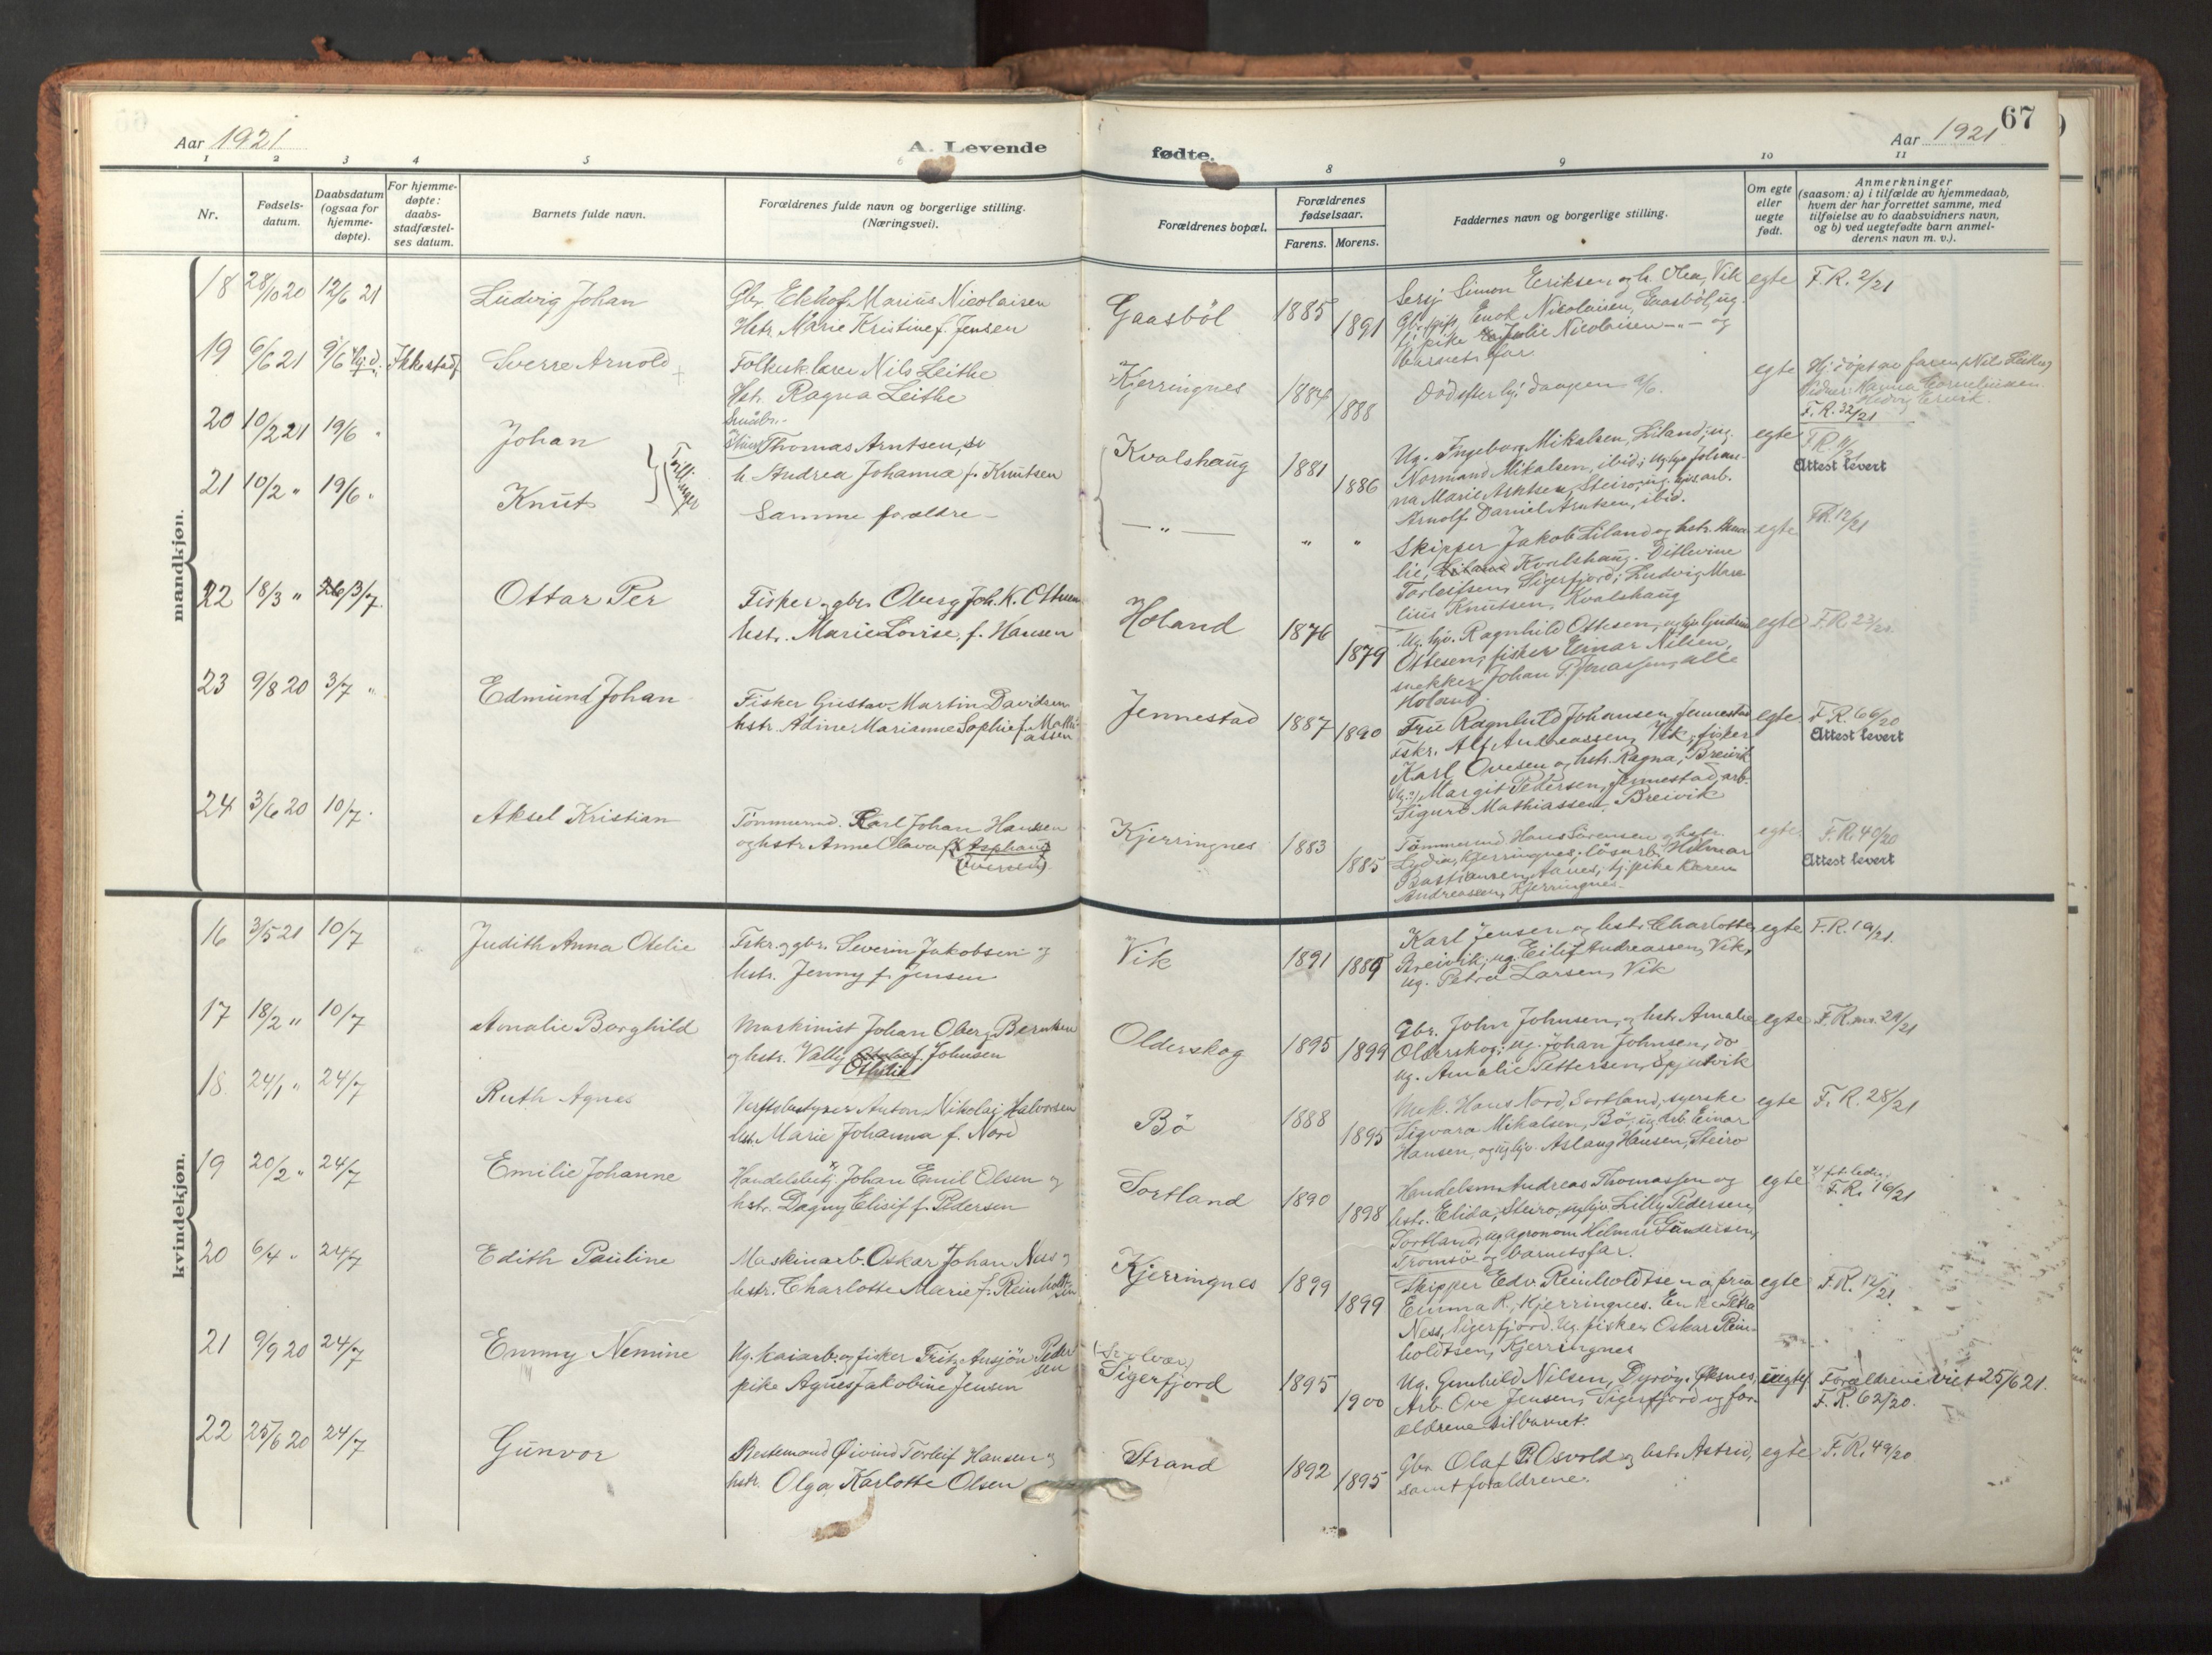 67
Aar 1921
A. Levende
fødte.
Aar 1921
1 2 3 4 5 8 9 10 11
Nr.
Fødsels-
datum.
Daabsdatum
(ogsaa for
hjemme-
døpte).
For hjemme-
døpte:
daabs-
stadfæstel-
ses datum.
Barnets fulde navn.
Forældrenes fulde navn og borgerlige stilling.
(Næringsvei).
Forældrenes bopæl.
Forældrenes
fødselsaar.
Farens. Morens.
Faddernes navn og borgerlige stilling.
Om egte
eller
uegte
født.
Anmerkninger
(saasom: a) i tilfælde av hjemmedaab,
hvem der har forrettet samme, med
tilføielse av to daabsvidners navn,
og b) ved uegtefødte barn anmel-
derens navn m. v.).
mandkjøn.
18 28/10 20 12/6 21
Ludvig Johan
Gbr. Marius Nicolaisen
Hstr. Marie Kristine f. Jensen
Gaasböl 1885 1891
Simon Eriksen og h. Olea, Vik
Enok Nicolaisen, Gaasböl, ug.
tj.pike Julie Nicolaisen -"- og
barnets far
egte F.R. 2/21
19 6/6 21 9/6 hj.d. Ikke stadf.
Sverre Arnold
Folkesk.lærer Nils Leithe
Hstr. Ragna Leithe
Kjerringnes 1884 1888
Död efter hj. daapen 9/6.
egte Hj. döpt av faren, Nils Leithe
F.R. 32/21
20 10/2 21 19/6 "
Johan
Thomas Arntsen,
h. Andrea Johanna f. Knutsen
Kvalshaug 1881 1886
Ug. Ingeborg Mikalsen, Liland; ug.
Normand Mikalsen, ibid.; Johan-
na Marie Arntsen, Steiro; ug. arb.
Arnolf Daniel Arntsen, ibid.
egte F.R. 11/21
Attest levert
21 10/2 " 19/6 "
Knut
Tvillinger
Samme forældre
— " — " "
Skipper Jakob Liland og hstr.
Kvalshaug. Ditlevine
Torleifsen, Sigerfjord; Ludvig Mare
lius Knutsen, Kvalshaug
egte F.R. 12/21
22 18/3 " 3/7.
Ottar Per
Fisker og gbr. Oberg Joh. K. Ottesen
hstr. Marie Lovise, f. Hansen
Holand 1876 1879
Ug. hjv. Ragnhild Ottesen,
Ottesen, fisker Einar Nilsen,
snekker Johan P. Jenassen, alle
Holand.
egte F.R. 23/21.
23 9/8 20 3/7 "
Edmund Johan
Fisker Gustav Martin Davidsen
hstr. Adine Marianne Sophie f. Mathi-
assen
Jennestad 1887 1890
Frue Ragnhild Johansen, Jennestad
Fskr. Alf Andreassen, Vik, fisker
Karl Ovesen og hstr. Ragna, Breivik
Margit Pedersen, Jennestad, arb.
Sigurd Mathiassen, Breivik
egte. F.R. 66/20
Attest levert
24 3/6 20 10/7.
Aksel Kristian
Tömmermd. Karl Johan Hansen
og hstr. Anne Olava f. Asphaug
(Iversen).
Kjerringnes 1883 1885
Tömmermd. Hans Sörensen og hstr.
Lydia, Kjerringnes; lösarb. Hilmar
Bastiansen, Aanes, tj.pike Karen
Andreassen, Kjerringnes.
egte. F.R. 40/20
Attest levert
kvindekjøn.
16 3/5 21 10/7
Judith Anna Otelie
Fskr. og gbr. Severin Jakobsen og
hstr. Jenny f. Jensen
Vik 1891 1889
Karl Jensen og hstr. Charlotte,
Breivik; ug. Eilif Andreassen, Vik,
ug. Petra Larsen, Vik
egte F.R. 19/21.
17 18/2 " 10/7
Amalie Borghild
Maskinist Johan Oberg Berntsen
og hstr. Vally f. Johnsen
Othilie
Olderskog 1895 1899
Gbr. John Johnsen, og hstr. Amalie
Olderskog; ug. Johan Johnsen, do
ug. Amalie Pettersen, Spjutvik
egte F.R. nr. 29/21
18. 24/1 " 24/7
Ruth Agnes
Verftsbestyrer Anton Nikolaj Halvorsen
hstr. Marie Johanna f. Nord
Bö 1888 1895
Hans Nord, Sortland, syerske
Sigvara Mikalsen, Bö; ug. arb. Einar
Hansen, og ug. hjv. Aslaug Hansen, Steiro
egte F.R. 28/21
19 20/2 " 24/7
Emilie Johanne
Handelsbetj. Johan Emil Olsen og
hstr. Dagny Elisif f. Pedersen
Sortland 1890 1898
Handelsm. Andreas Thomassen og
hstr. Elida, Steiro, ug. hjv. Lilly Pedersen,
Sortland; ug. agronom Hilmar Gundersen,
Tromsö og barnets far.
egte
F.R. 16/21
20 6/4 " 24/7
Edith Pauline
Maskinarb. Oskar Johan Ness og
hstr. Charlotte Marie f. Reinholdt-
sen
Kjerringnes 1899 1899
Skipper Edv. Reinholdtsen og frue
Emma R., Kjerringnes. Enke Petra
Ness, Sigerfjord. Ug. fisker Oskar Rein-
holdtsen, Kjerringnes
egte F.R. 12/21.
21 9/9 20 24/7
Emmy Nemine
Ug. kaiarb. og fisker Fritz Ansjön Peder
sen
pike Agnes Jakobine Jensen
(Svolvær)
Sigerfjord 1895 1900
Ug. Gunhild Nilsen, Dyröy, Öksnes,
Arb. Ove Jensen, Sigerfjord og for-
ældrene til barnet.
uegte Forældrene viet 25/6 21.
F.R. 62/20.
22 25/6 20 24/7
Gunvor
Bestemand Øivind Torleif Hansen og
hstr. Olga Karlotte Olsen
Strand 1892 1895
Gbr. Olaf P. Osvold og hstr. Astrid,
samt forældrene.
egte F.R. 49/20